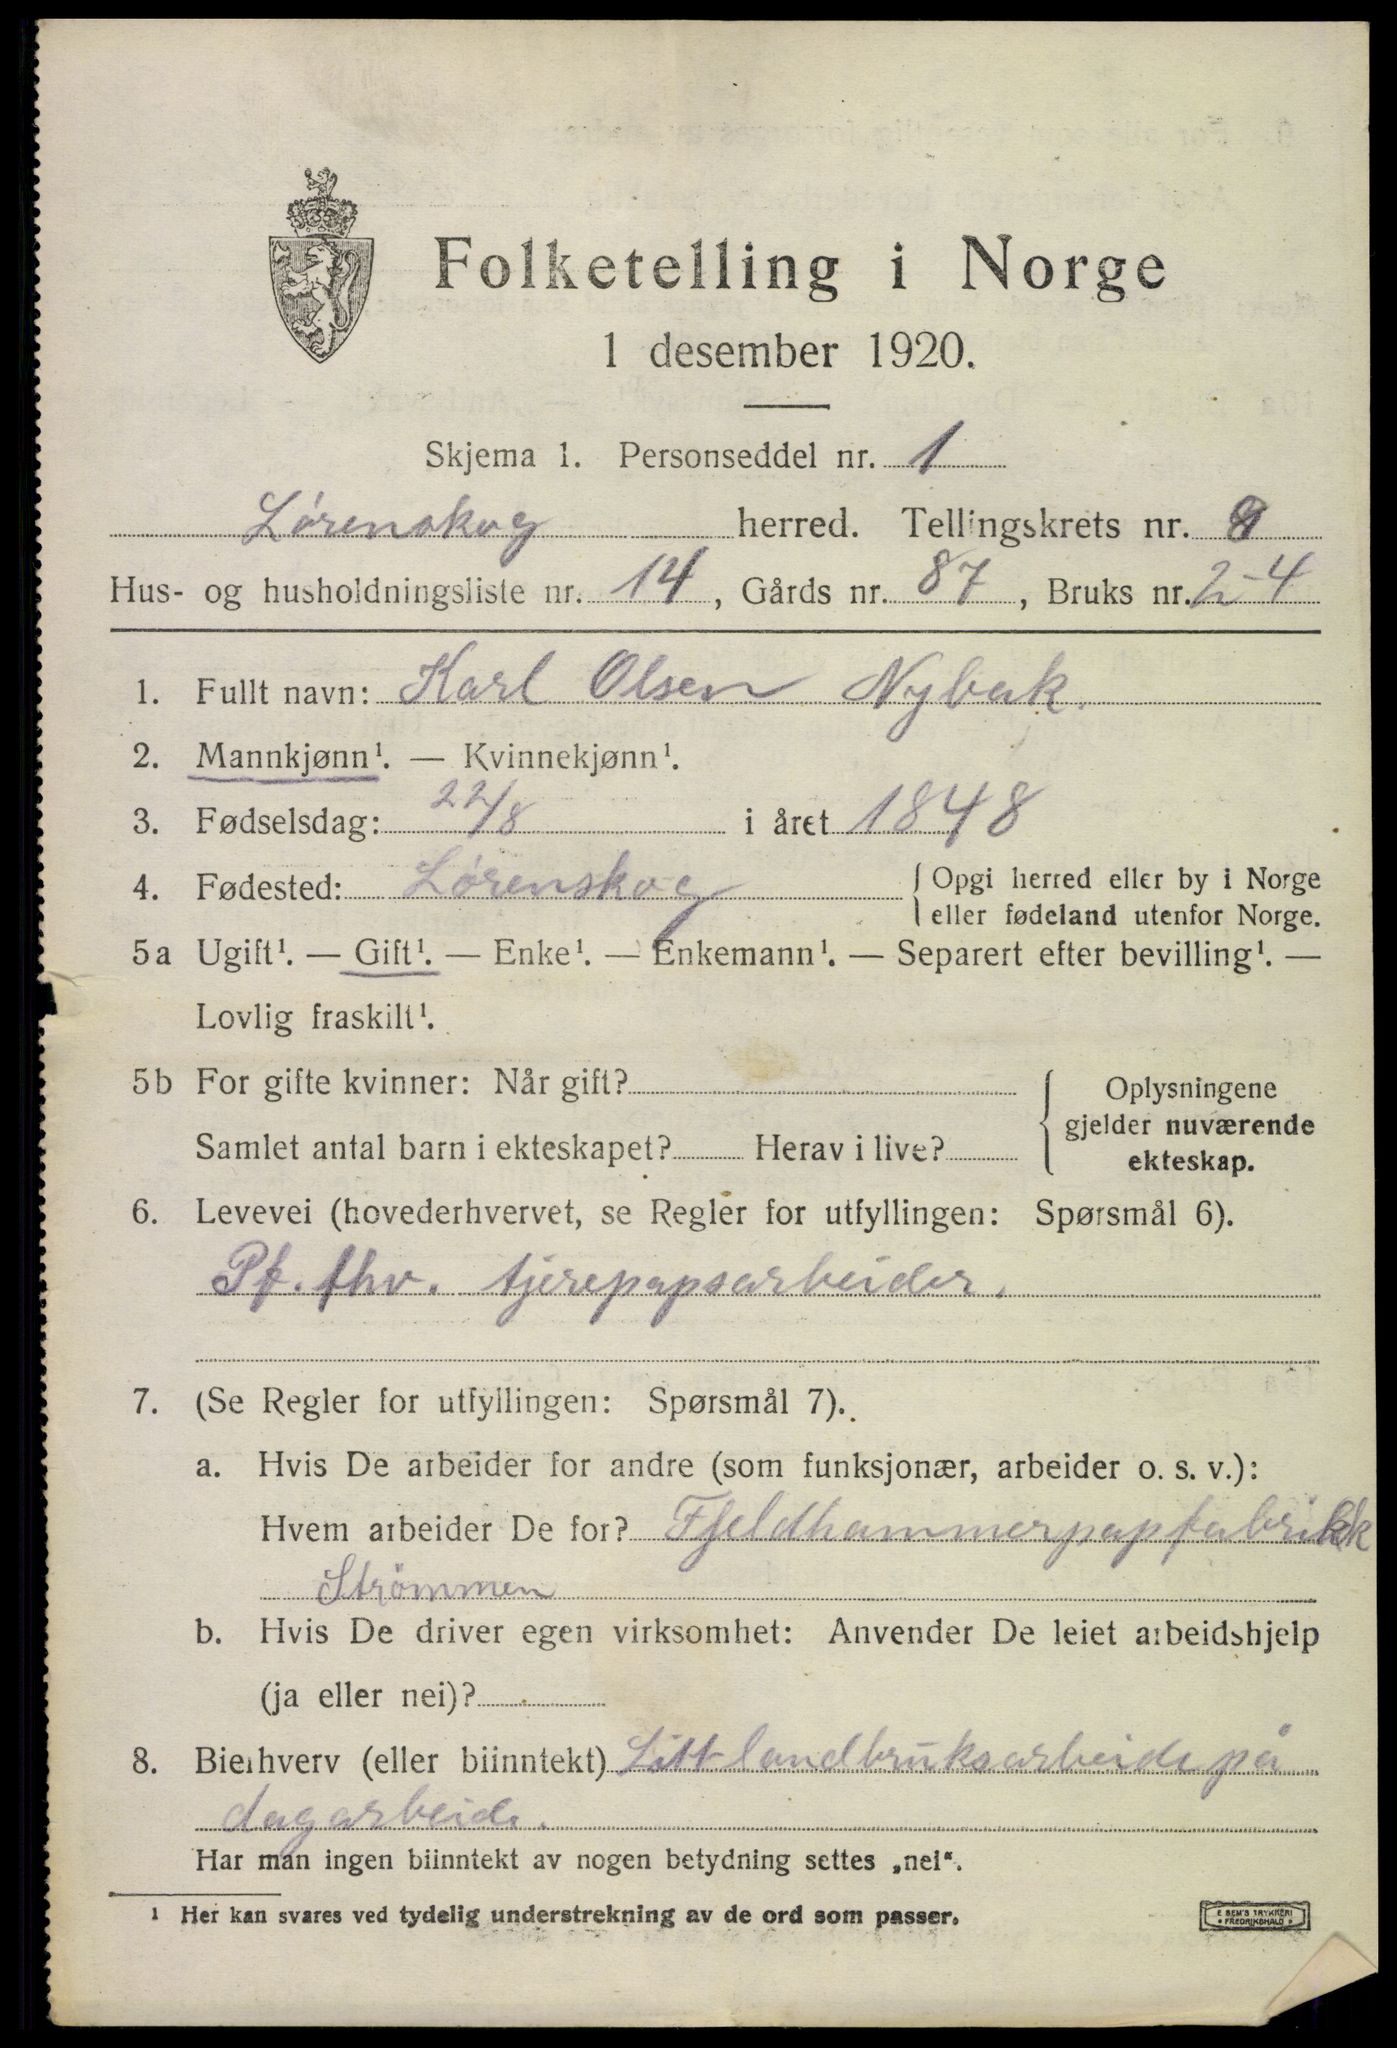 Folketelling i Norge
1 desember 1920.
Skjema 1. Personseddel nr. 1
Lørenskog herred. Tellingskrets nr.
Hus- og husholdningsliste nr. 14, Gårds nr. 87, Bruks nr. 2-4
1. Fullt navn: Karl Olsen Nybak.
2. Mannkjønn¹. — Kvinnekjønn¹.
3. Fødselsdag: 22/8 i året 1848
4. Fødested: Lørenskog { Opgi herred eller by i Norge
eller fødeland utenfor Norge.
5a Ugift¹. — Gift¹. — Enke¹. — Enkemann¹. — Separert efter bevilling¹. —
Lovlig fraskilt¹.
5b For gifte kvinner: Når gift?
Samlet antal barn i ekteskapet? Herav i live?
{ Oplysningene
gjelder nuværende
ekteskap.
6. Levevei (hovederhvervet, se Regler for utfyllingen: Spørsmål 6).
Pf. fhv. tjerepapsarbeider.
7. (Se Regler for utfyllingen: Spørsmål 7).
a. Hvis De arbeider for andre (som funksjonær, arbeider o. s. v.):
Hvem arbeider De for? Fjeldhammerpapfabrikk
Strömmen
b. Hvis De driver egen virksomhet: Anvender De leiet arbeidshjelp
(ja eller nei)?
8. Bierhverv (eller biinntekt) Litt landbruksarbeide på
dagarbeide.
Har man ingen biinntekt av nogen betydning settes „nei“.
¹ Her kan svares ved tydelig understrekning av de ord som passer.
E SEM'S TRYKKERI
FREDRIKSHALD